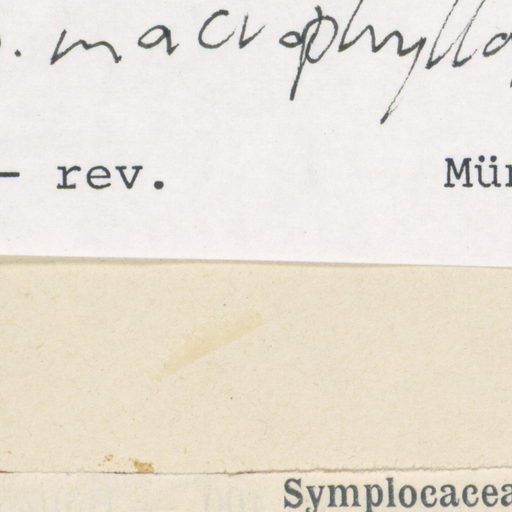 . macrophylla
- rev. Mün
Symplocacea